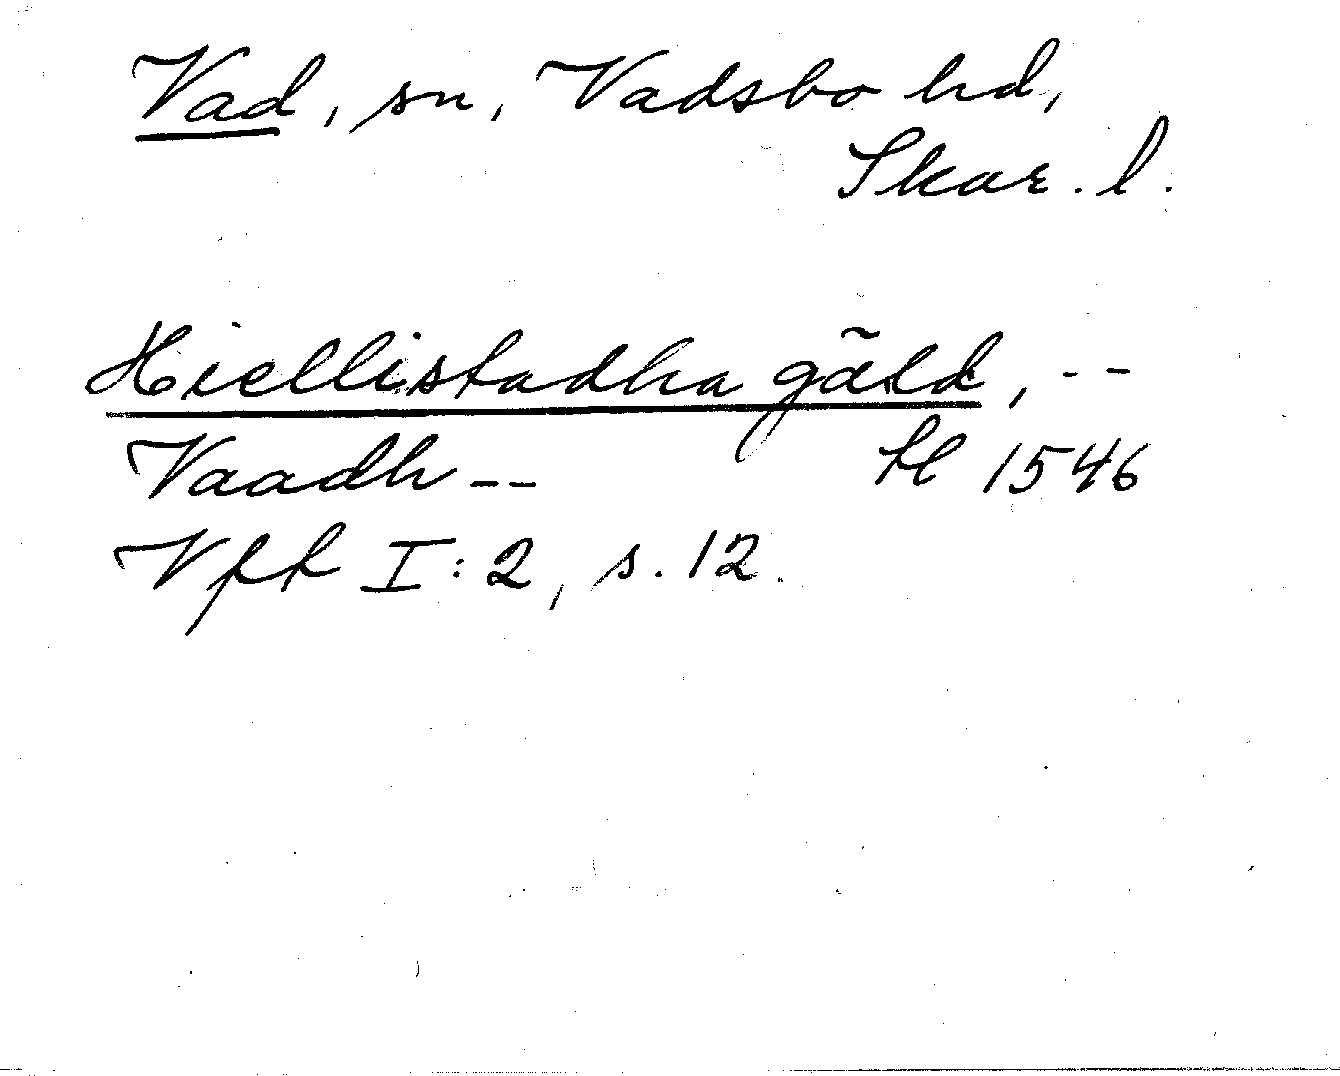 Vad, sn, Vadsbo hd,
Skar. l.
Hiellistadha gäld, --
Vaadh -- 1546
Vff I:2, s. 12.